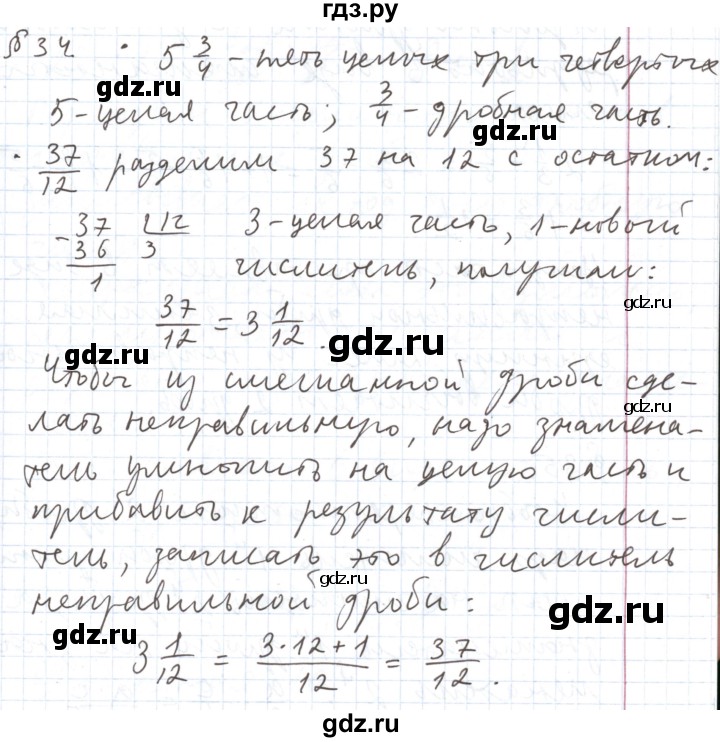 гдз.ру
§34 • 5 3/4 - пять целых три четвертых
gdz.ru
5 - целая часть; 3/4 - дробная часть.
gdz.ru
• 37/12 разделим 37 на 12 с остатком:
- 37 | 12 3 - целая часть, 1 - новый
36 3
1 числитель, получили:
gdz.ru
37/12 = 3 1/12.
gdz.ru
Чтобы из смешанной дроби сде-
gdz.ru
лать неправильную, надо знамена-
тель умножить на целую часть и
прибавить к результату числи-
тель, записать это в числитель
gdz.ru
неправильной дроби:
gdz.ru
gdz.ru
3 1/12 = (3·12+1)/12 = 37/12.
gdz.ru